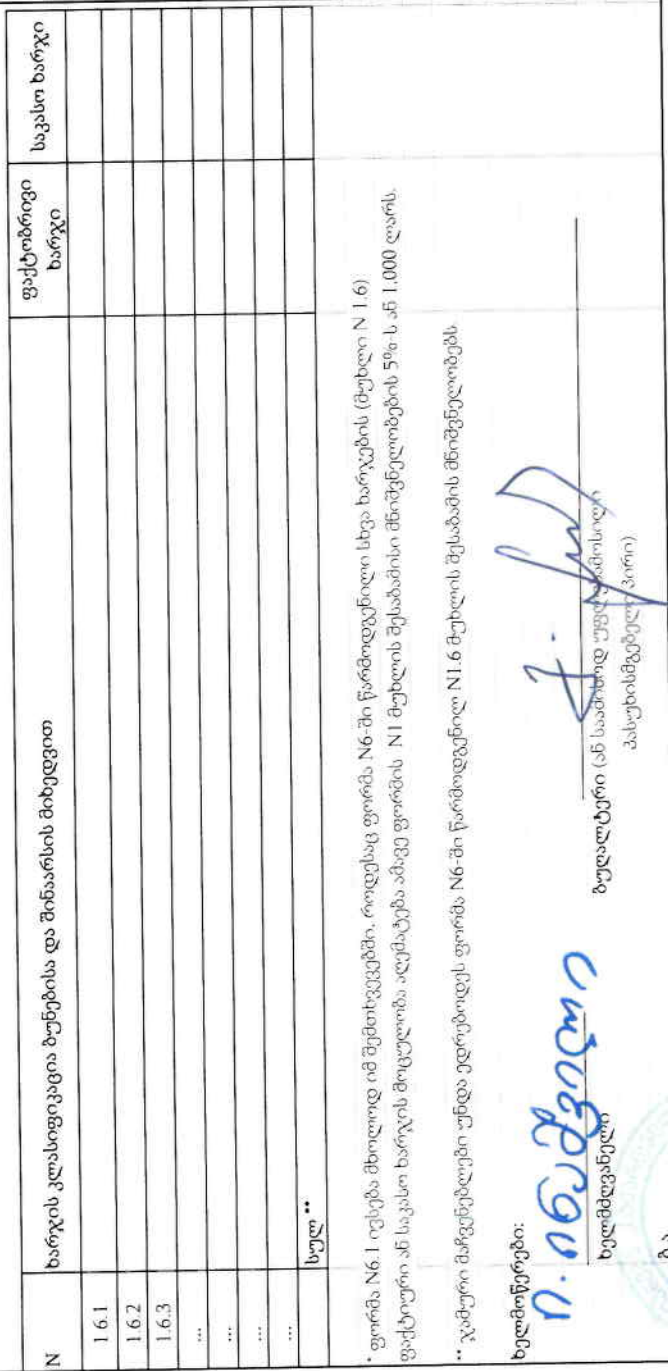 N ხარჯის კლასიფიკაცია ბუნებისა და შინაარსის მიხედვით ფაქტობრივი ხარჯი საკასო ხარჯი
1.6.1
1.6.2
1.6.3
...
...
...
...
სულ **
* ფორმა N6.1 ივსება მხოლოდ იმ შემთხვევებში, როდესაც ფორმა N6-ში წარმოდგენილი სხვა ხარჯების (მუხლი N 1.6)
ფაქტიური ან საკასო ხარჯის მოცულობა აღემატება ამავე ფორმის N1 მუხლის შესაბამისი მნიშვნელობების 5%-ს ან 1,000 ლარს.
** ჯამური მაჩვენებლები უნდა ედრებოდეს ფორმა N6-ში წარმოდგენილ N1.6 მუხლის შესაბამის მნიშვნელობებს.
ხელმოწერები:
ხელმძღვანელი
ბუღალტერი (ან საამისოდ უფლებამოსილი
პასუხისმგებელი პირი)
ბ.ა.